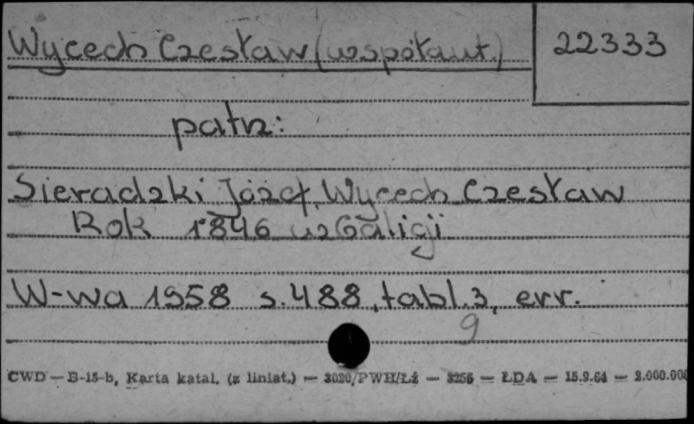 Wycech Czesław (współaut.)
22333
patrz:
Sieradzki Józef, Wycech Czesław
Rok 1846 w Galicji
W-wa 1958 s. 488, tabl. 3, err.
9
CWD — B-15-b, Karta katal. (z liniat.) — 3020/PWH/Łż — 3256 — ŁDA — 15.9.64 — 2.000.000